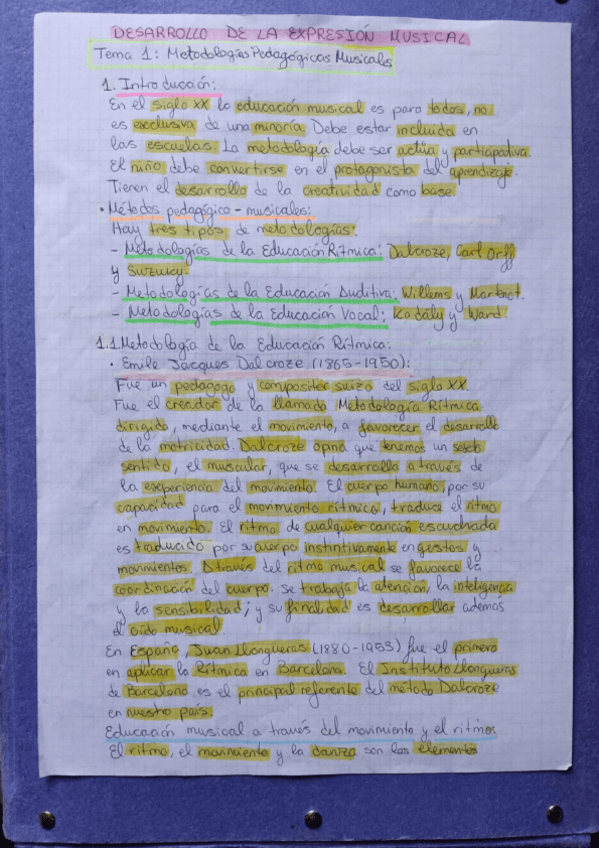 DESARROLLO DE LA EXPRESIÓN MUSICAL
Tema 1: Metodologías Pedagógicas Musicales
1. Introducción:
En el siglo XX la educación musical es para todos, no
es exclusiva de una minoría. Debe estar incluida en
las escuelas. La metodología debe ser activa y participativa.
El niño debe convertirse en el protagonista del aprendizaje.
Tienen el desarrollo de la creatividad como base.
• Métodos pedagógico-musicales:
Hay tres tipos de metodologías:
- Metodologías de la Educación Rítmica: Dalcroze, Carl Orff
y Suzuky.
- Metodologías de la Educación Auditiva: Willems y Martenot.
- Metodologías de la Educación Vocal: Kodály y Ward.
1.1. Metodología de la Educación Rítmica:
• Emile Jacques Dalcroze (1865-1950):
Fue un pedagogo y compositor suizo del siglo XX.
Fue el creador de la llamada Metodología Rítmica
dirigida, mediante el movimiento, a favorecer el desarrollo
de la motricidad. Dalcroze opina que tenemos un sexto
sentido, el muscular, que se desarrolla a través de
la experiencia del movimiento. El cuerpo humano, por su
capacidad para el movimiento rítmico, traduce el ritmo
en movimiento. El ritmo de cualquier canción escuchada
es traducido por su cuerpo instintivamente en gestos y
movimientos. A través del ritmo musical se favorece la
coordinación del cuerpo: se trabaja la atención, la inteligencia
y la sensibilidad; y su finalidad es desarrollar además
el oído musical.
En España, Juan Llongueras (1880-1953) fue el primero
en aplicar la Rítmica en Barcelona. El Instituto Llongueras
de Barcelona es el principal referente del método Dalcroze
en nuestro país.
Educación musical a través del movimiento y el ritmo:
El ritmo, el movimiento y la danza son los elementos